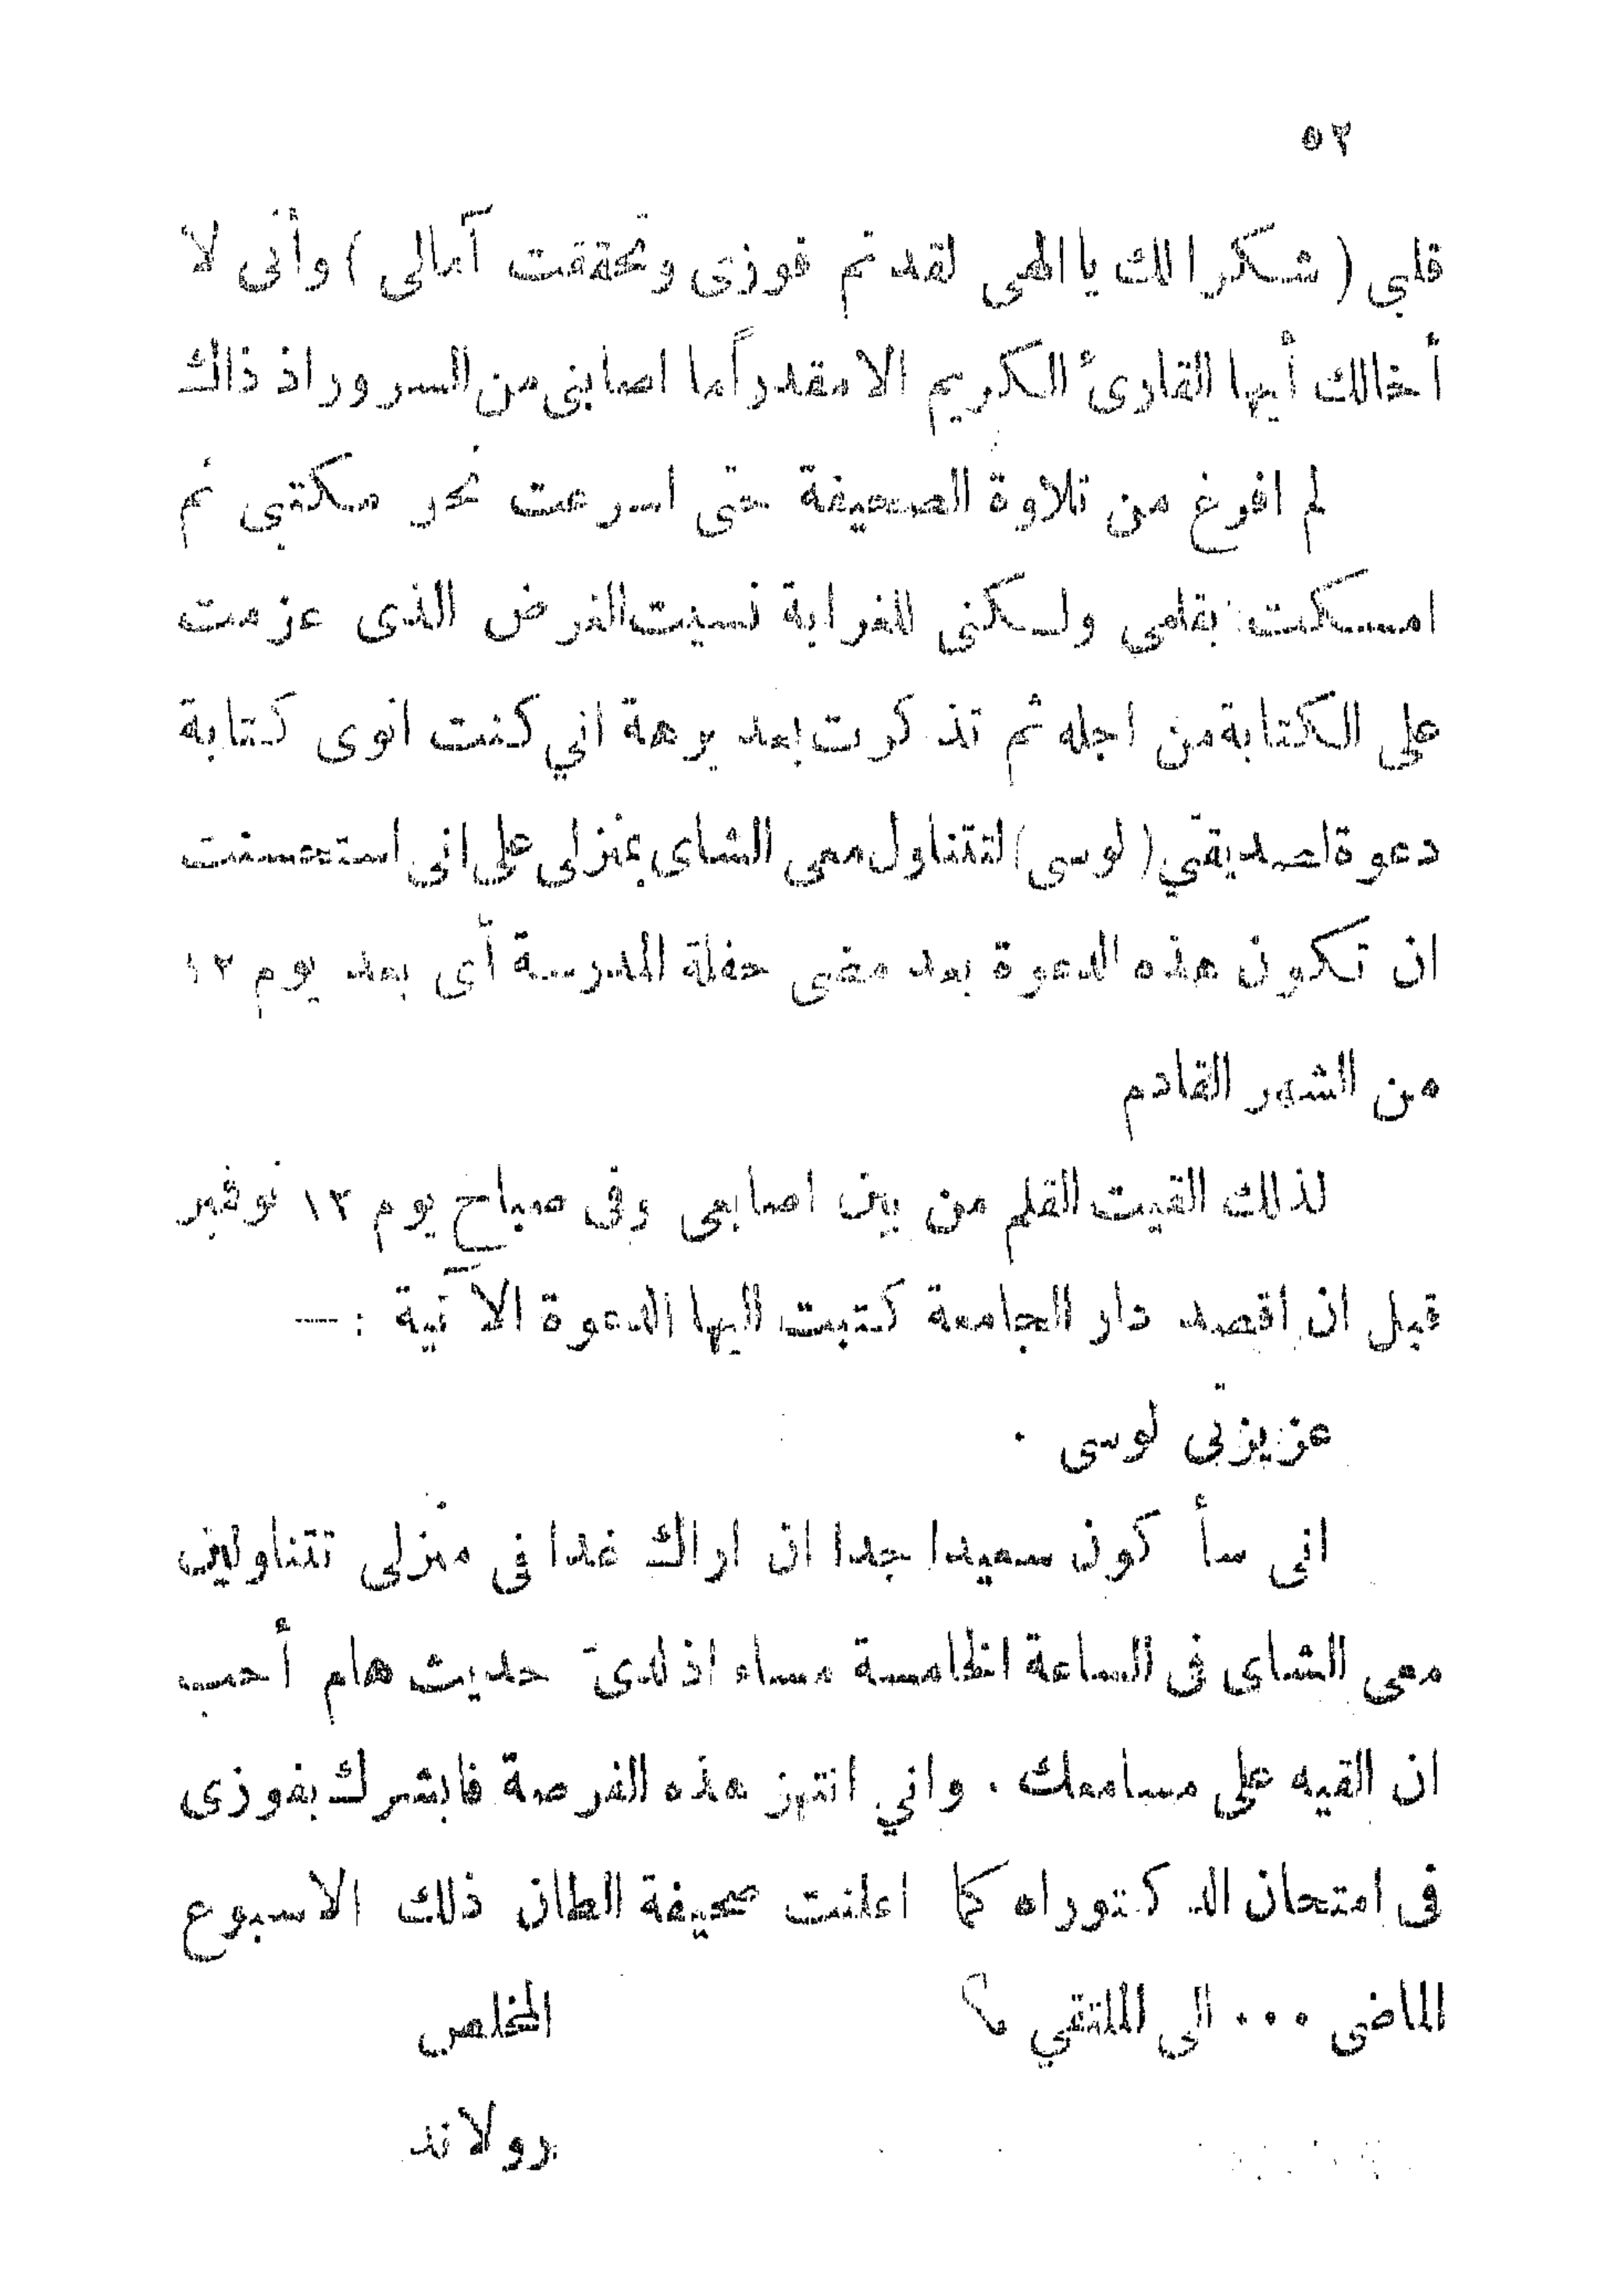 ٥٢
قلبي ( شكرا لك يا الهى لقد تم فوزى وتحققت آمالى ) وأنى لا
أخالك أيها القارئ الكريم الا مقدراً ما اصابنى من السرور اذ ذاك
لم افرغ من تلاوة الصحيفة حتى اسرعت نحو مكتبى ثم
امسكت بقلمى ولكنى للغرابة نسيت الغرض الذى عزمت
على الكتابة من اجله ثم تذكرت بعد برهة اني كنت انوى كتابة
دعوة لصديقتي ( لوسى ) لتتناول معى الشاى بمنزلى على انى استحسنت
ان تكون هذه الدعوة بعد مضى حفلة المدرسة أى بعد يوم ١٢
من الشهر القادم
لذلك القيت القلم من بين اصابعى وفى صباح يوم ١٢ نوفمبر
قبل ان اقصد دار الجامعة كتبت اليها الدعوة الآتية : —
عزيزتى لوسى .
انى سأكون سعيدا جدا ان اراك غدا فى منزلى تتناولين
معى الشاى فى الساعة الخامسة مساء اذ لدىّ حديث هام أحب
ان القيه على مسامعك . واني انتهز هذه الفرصة فابشرك بفوزى
فى امتحان الدكتوراه كما اعلنت صحيفة الطان ذلك الاسبوع
الماضى ... الى الملتقي ؟ المخلص
رولاند